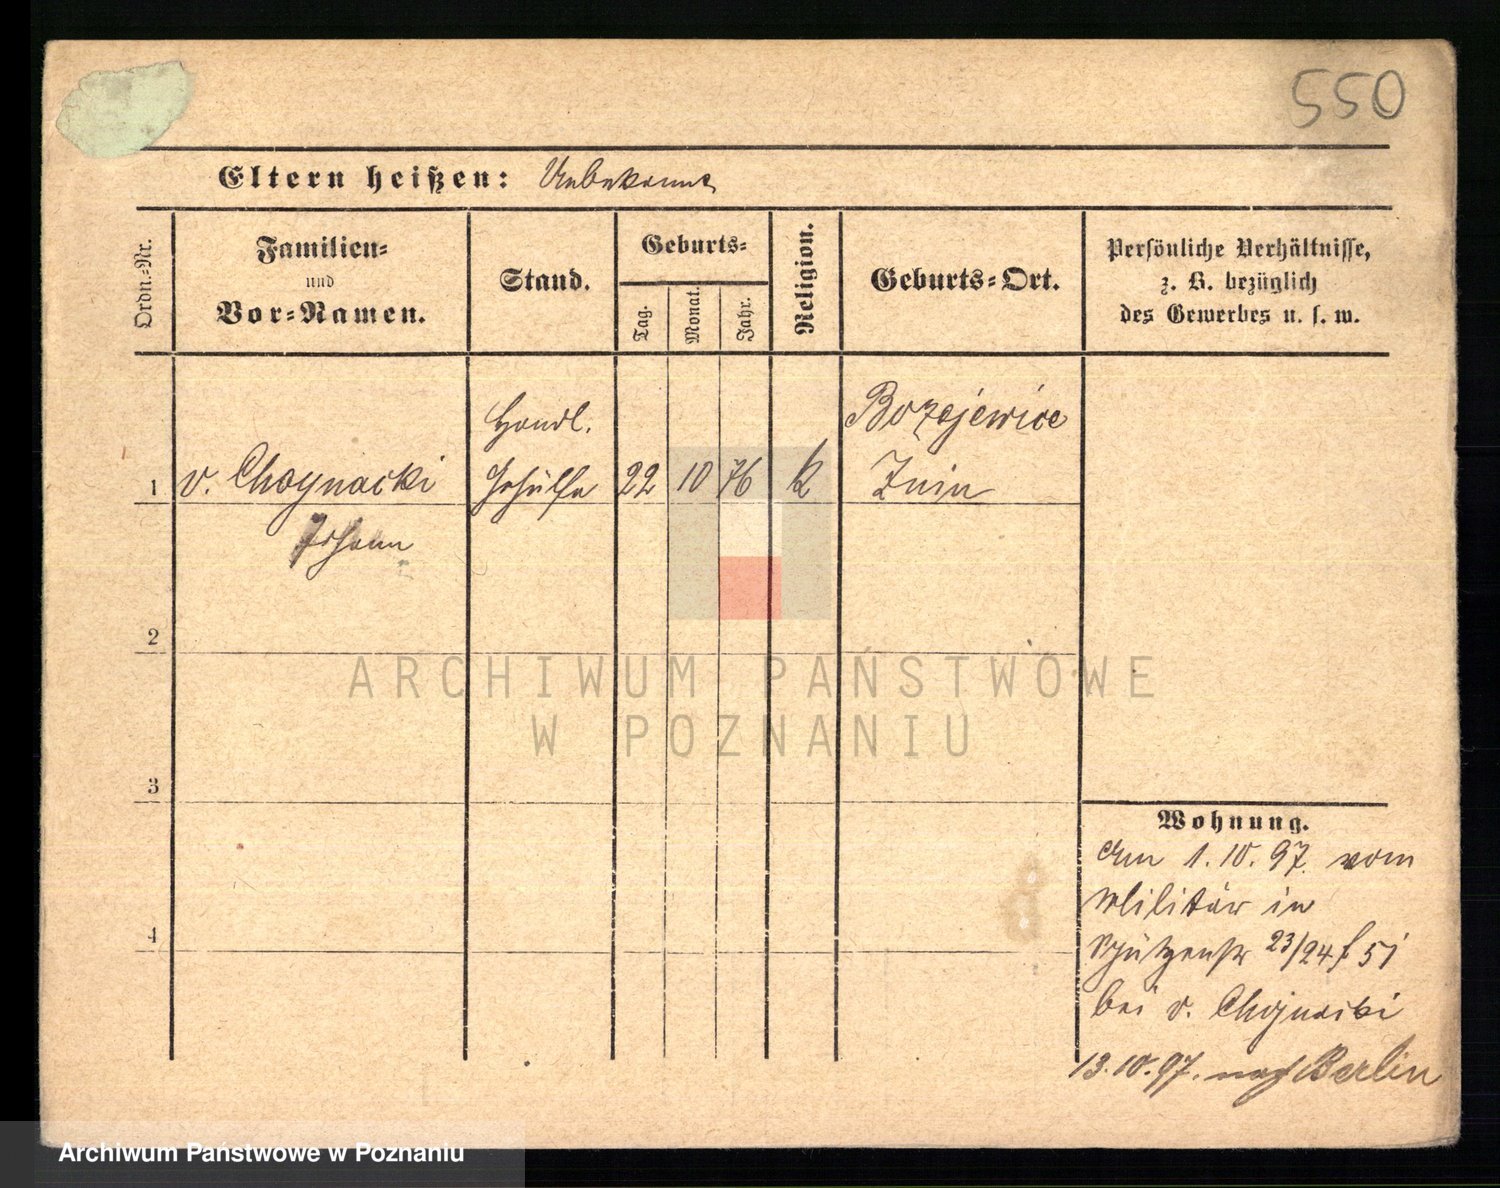 550
Eltern heißen: Unbekannt
Ordn.-Nr.
Familien-
und
Vor-Namen.
Stand.
Geburts-
Tag.
Monat.
Jahr.
Religion.
Geburts-Ort.
Persönliche Verhältnisse,
z. B. bezüglich
des Gewerbes u. s. w.
Handl. Bozejewice
1 v. Choynacki Gehülfe 22 10 76 k Znin
Johann
2
ARCHIWUM PAŃSTWOWE
W POZNANIU
3
4
Wohnung.
Am 1.10.97. vom
Militär in
Schützenstr 23/24 f 5i
bei v. Chojnacki
13.10.97. nach Berlin
Archiwum Państwowe w Poznaniu